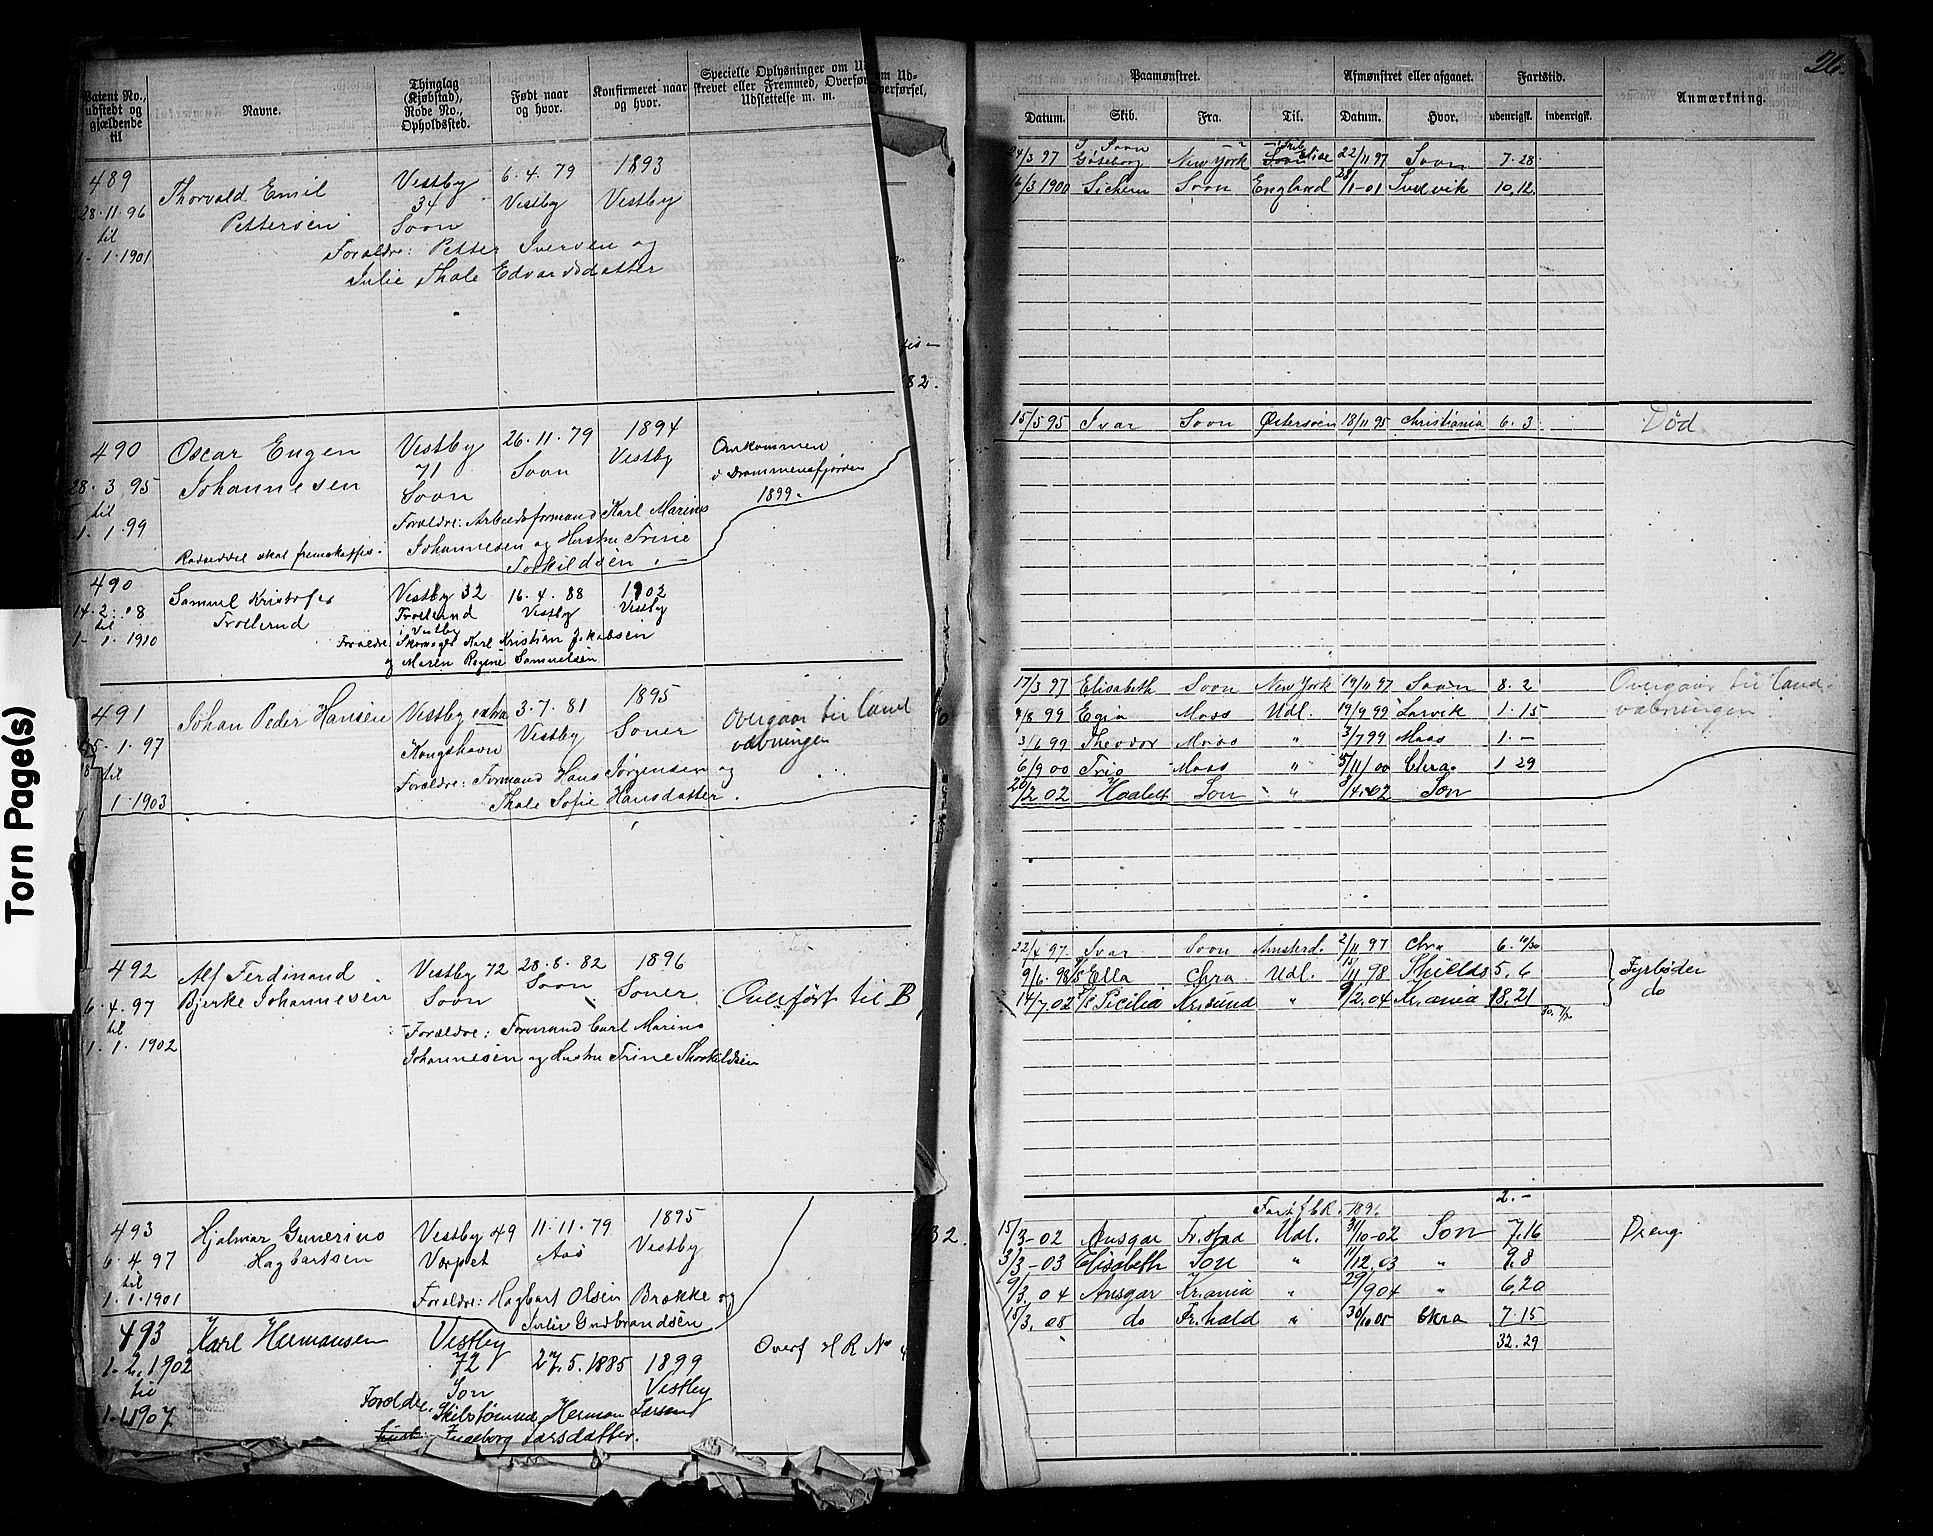 Torn Page(s)
Patent No., udstedt og gjældende til
Navne.
Thinglag (Kjøbstad), Rode No., Opholdssted.
Født naar og hvor.
Konfirmeret naar og hvor.
Specielle Oplysninger om Ud-
skrevet eller Fremmed, Overførsel,
Udslettelse m. m.
489
28.11.96
til
1.1.1901
Thorvald Emil
Pettersen
Vestby
34
Soon
6.4.79
Vestby
1893
Vestby
Forældre: Petter Iversen og
Julie Thale Edvardsdatter
490
28.3.95
til
1.1.99
Oscar Eugen
Johannesen
Vestby
71
Soon
26.11.79
Soon
1894
Vestby
Omkommen
i Drammensfjorden
1899.
Forældre: Arbeidsformand Karl Marius
Johannesen og Hustru Trine
Torkildsen.
Rodseddel skal fremskaffes.
490
14.2.08
til
1.1.1910
Samuel Kristofer
Trollerud
Vestby 32
Trollerud
i Vestby
16.4.88
Vestby
1902
Vestby
Forældre: Skomager Karl Kristian Jakobsen
og Maren Regine Samuelsen
491
1.97
til
1.1903
Johan Peder Hansen
Vestby extra
Kongshavn
3.7.81
Vestby
1895
Soner
Overgaar til land
væbningen
Forældre: Formand Hans Jørgensen og
Thale Sofie Hansdatter.
492
6.4.97
til
1.1.1902
Alf Ferdinand
Bjerke Johannesen
Vestby 72
Soon
28.8.82
Soon
1896
Soner
Overført til B
Forældre: Formand Carl Marius
Johannesen og Hustru Trine Thorkildsen
493
6.4.97
til
1.1.1901
Hjalmar Gunerius
Hagbartsen
Vestby 49
Vorpet
11.11.79
Aas
1895
Vestby
Forældre: Hagbart Olsen Brække og
Julie Gudbrandsen
493
1.2.1902
til
1.1.1907
Karl Hermansen
Vestby
72
Son
27.5.1885
1899
Vestby
Overf H R No 432.
Forældre:
Skibstømmd. Herman Larsen
Ingeborg Larsdatter.
26.
Paamønstret.
Afmønstret eller afgaaet.
Fartstid.
Anmærkning.
Datum.
Skib.
Fra.
Til.
Datum.
Hvor.
udenrigsk.
indenrigsk.
24/3 97 Göteborg New York 22/11 97 Soon 7.28
16/3 1900 Sichem Soon England 28/1-01 10.12
15/5 95 Ivar Soon Østersøen 18/11 95 Christiania 6.3 Død
17/3 97 Elisabeth Soon New York 19/11 97 Soon 8.2 Overgaar til land-
4/8 99 Egia Moss Udl. 19/9 99 Larvik 1.15 væbningen.
3/6 99 Theodor Moss " 3/7 99 Moss 1.-
6/9 00 Trio Moss " 5/11 00 Chra. 1 29
20/2 02 Haabet Son " 8/4.02 Son
22/4 97 Ivar Soon Amsterd. 2/11 97 Chra 6.10/30
9/6.98 Ella Chra Udl. 15/11 98 Shields 5.6 Fyrbøder
14/7 02 Cicilia Kr.sund " 9/2.04 Kr.ania 18.21 do
2.-
15/3-02 Ansgar Fr.stad Udl. 31/10-02 Son 7.16 Dreng
3/3-03 Elisabeth Son " 11/12.03 " 9.8
9/3.04 Ansgar Kr.ania " 29/9 04 " 6.20
15/3.05 do Fr.hald " 30/10 05 Chra 7.15
32.29